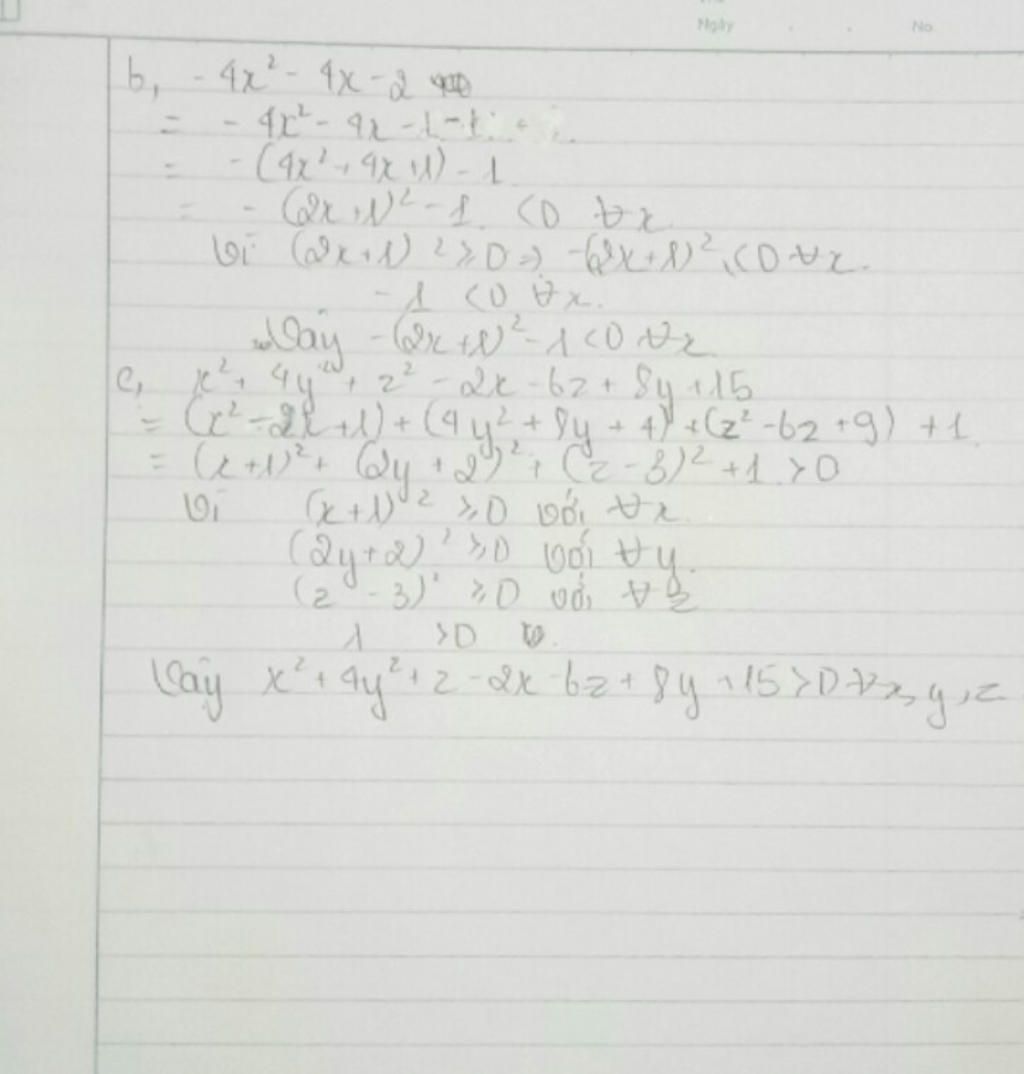 Ngày . . No.
b, - 4x² - 4x - 2
= - 4x² - 4x - 1 - 1
= - (4x² + 4x + 1) - 1
= - (2x + 1)² - 1 < 0 ∀x
Vì (2x + 1)² ≥ 0 => -(2x + 1)² ≤ 0 ∀x.
- 1 < 0 ∀x.
Vậy - (2x + 1)² - 1 < 0 ∀x
c, x² + 4y² + z² - 2x - 6z + 8y + 15
= (x² - 2x + 1) + (4y² + 8y + 4) + (z² - 6z + 9) + 1
= (x + 1)² + (2y + 2)² + (z - 3)² + 1 > 0
Vì (x + 1)² ≥ 0 với ∀x.
(2y + 2)² ≥ 0 với ∀y.
(z - 3)² ≥ 0 với ∀z
1 > 0
Vậy x² + 4y² + z - 2x - 6z + 8y + 15 > 0 ∀x, y, z